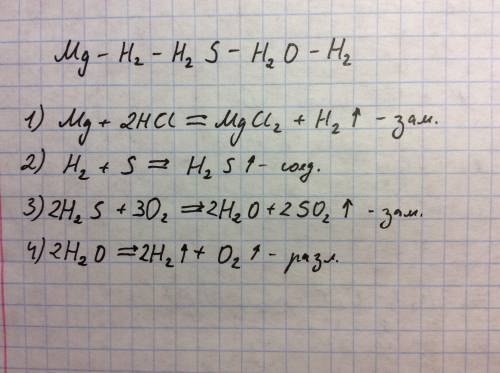 Mg - H₂ - H₂ S - H₂ O - H₂
1) Mg + 2HCl = MgCl₂ + H₂ ↑ - зам.
2) H₂ + S = H₂ S ↑ - соед.
3) 2H₂ S + 3O₂ = 2H₂ O + 2SO₂ ↑ - зам.
4) 2H₂ O = 2H₂ ↑ + O₂ ↑ - разл.